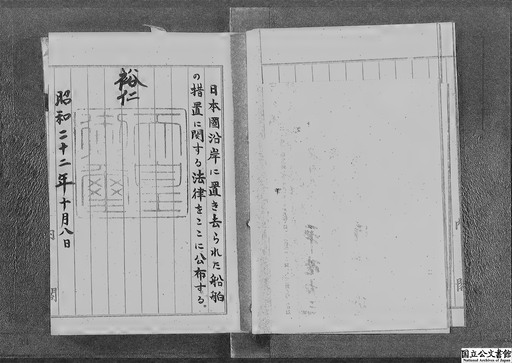 日本國沿岸に置き去られた船舶
の措置に関する法律をここに公布する。
裕仁
天皇
御璽
昭和二十二年十月八日
内閣
国立公文書館
National Archives of Japan